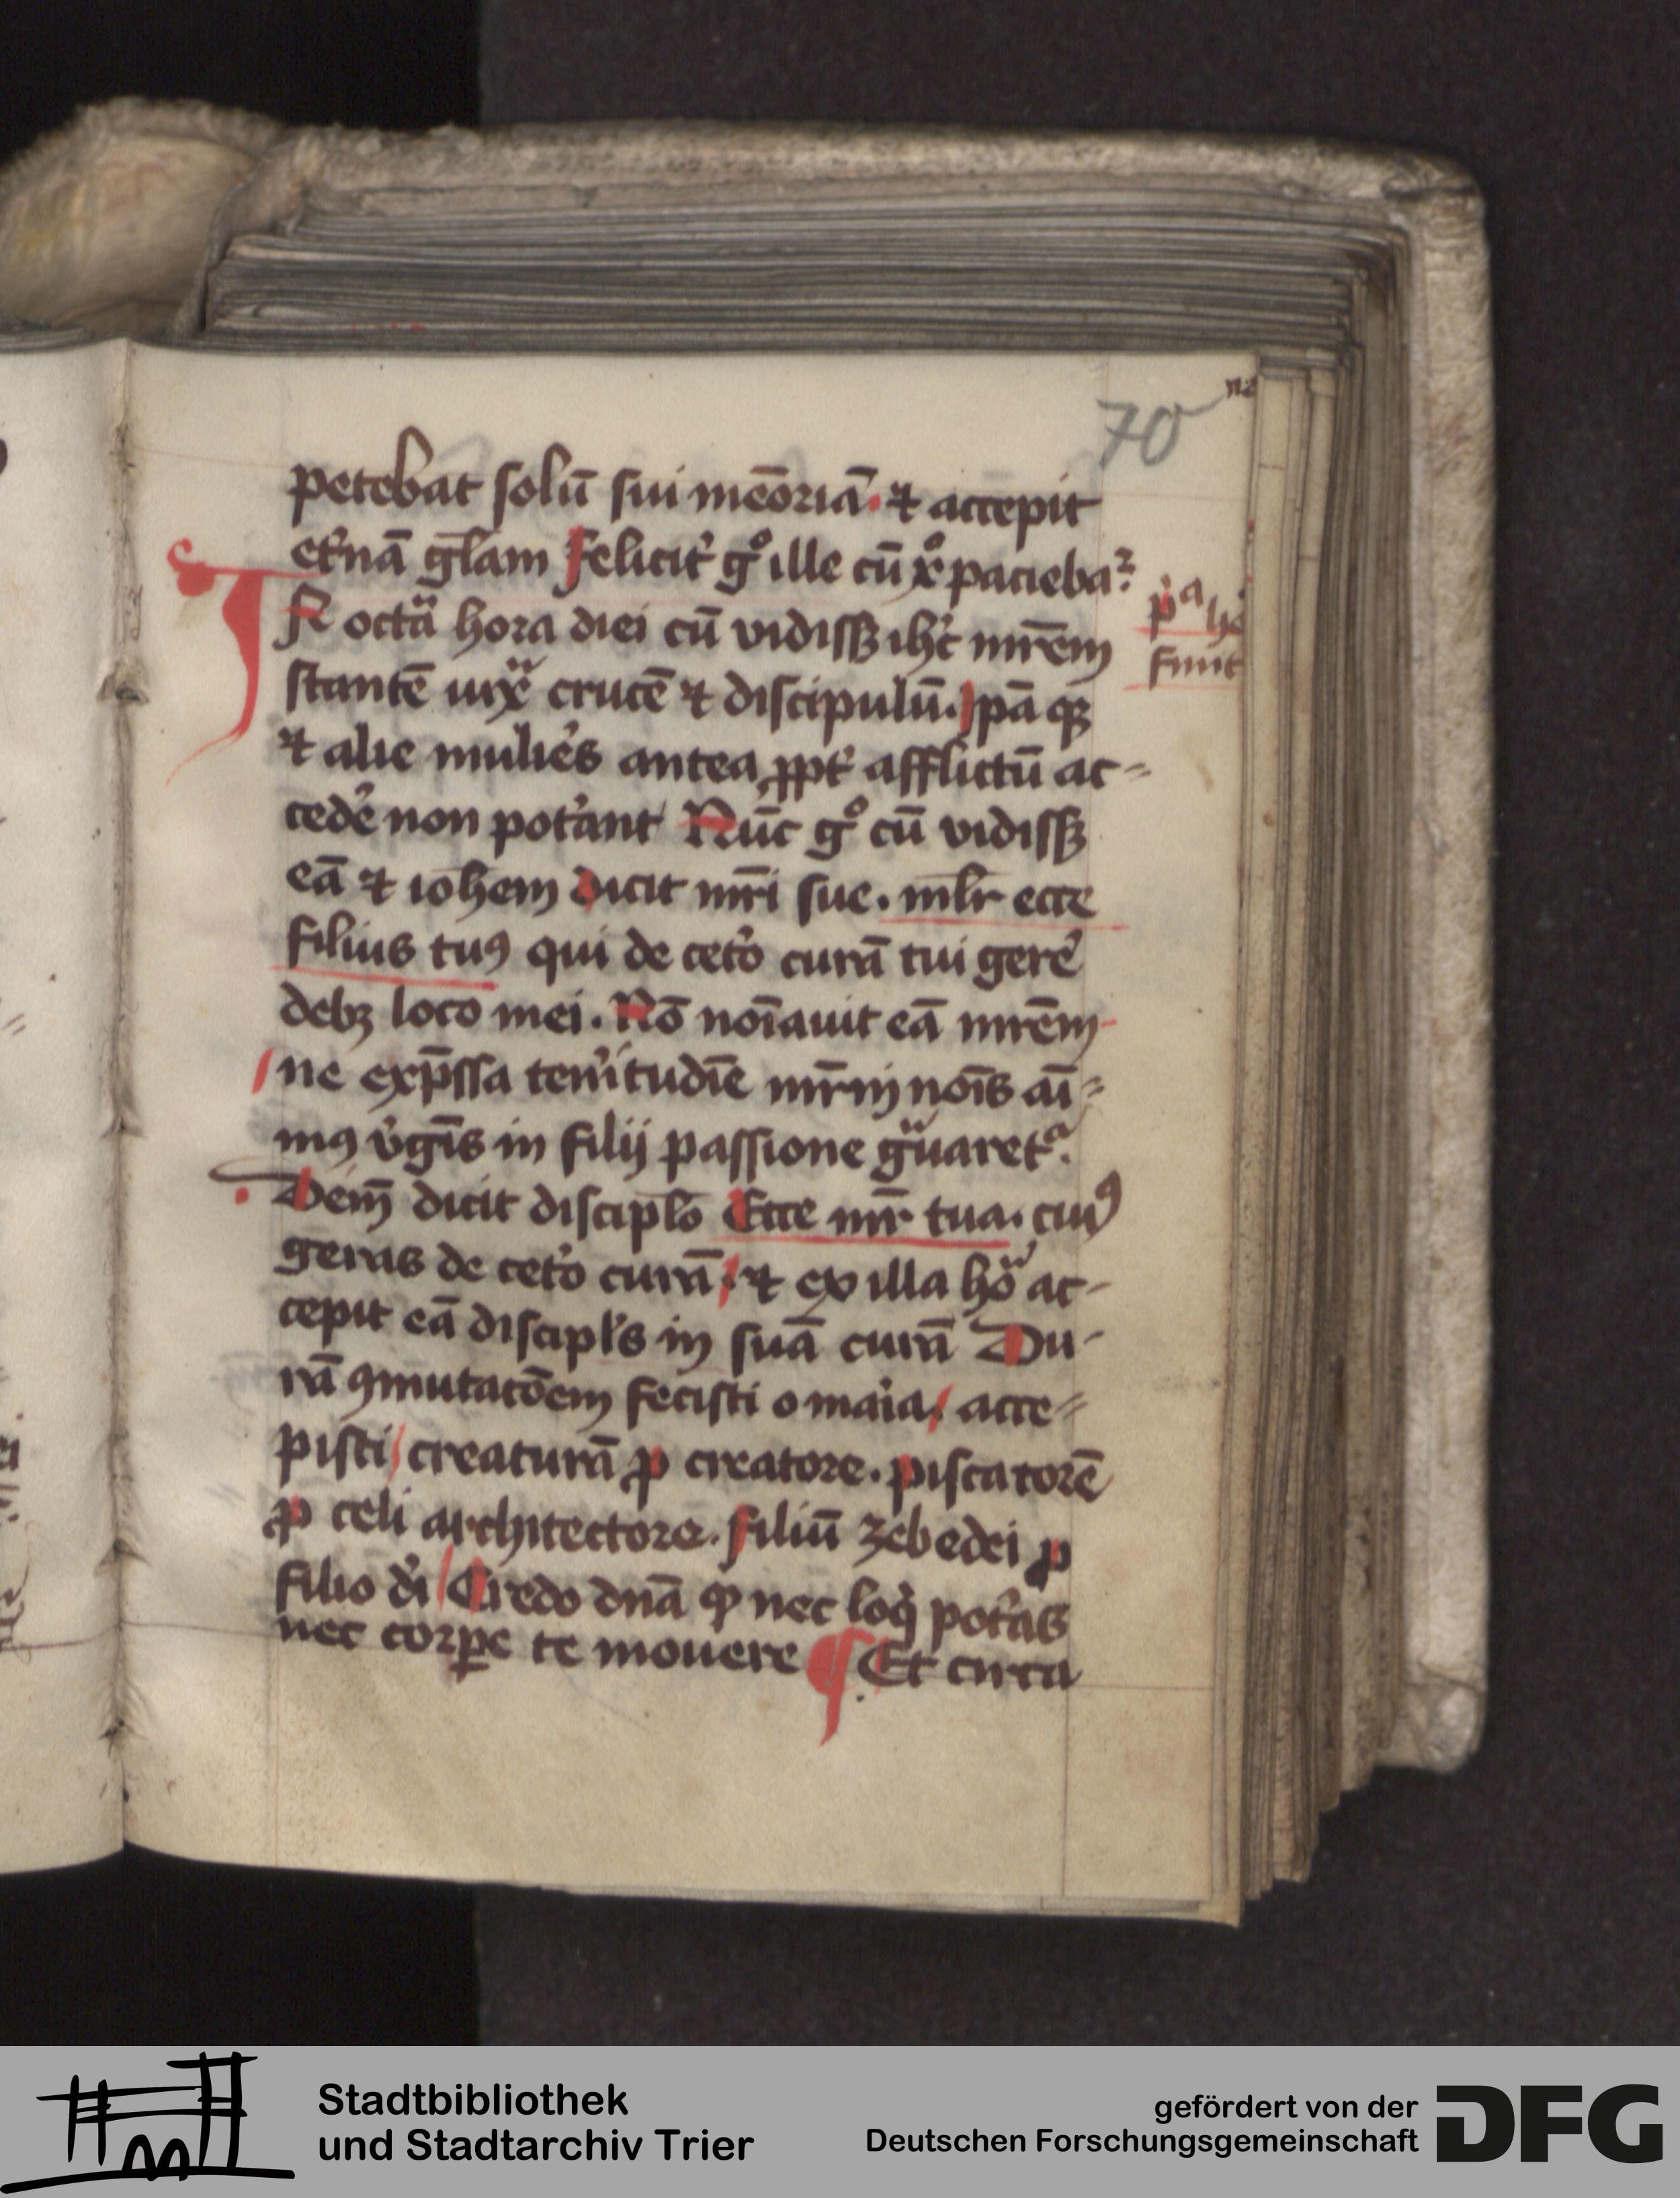 70
petebat solū sui mēoriā. ⁊ accepit
et̾nā gl̄am Felicit̾ gͦ ille cū xͦ pacieba⁊᷒.
IN octaͣ hora diei cū vidissꝫ ihc̄ mr̄em
stantē iuxͣ crucē ⁊ discipulū. Ipā qꝫ
⁊ alie mulie̾s antea ꝓpt̾ afflictū ac⸗
cede̾ non pot̾ant Nūc gͦ cū vidissꝫ
eā ⁊ ioh̄em dicit mr̄i sue. ml̄r ecce
filius tuꝯ qui de cet̾o curā tui gere̾
debꝫ loco mei. Nō noīauit eā mr̄em
ne exp̄ssa ten̾itudīe mr̄ni noīs aī⸗
mꝯ v̾gīs in filij passione gͣuaret᷑.
Dem̄ dicit discipl̄o Ecce mr̄ tua. cuiꝯ
geras de cet̾o curā. ⁊ ex illa hoͣ ac-
cepit eā discipl̾s in suā curā Du-
rā ꝯmutatōem fecisti o maria, acce⸗
pisti creaturā ꝓ creatore. piscatorē
ꝓ celi architectore. filiū zebedei ꝓ
filio d̾i Credo dnā ꝙ nec loqͥ pot̾as
nec corꝑe te mouere ¶ Et circa
funt
Stadtbibliothek
und Stadtarchiv Trier
gefördert von der
Deutschen Forschungsgemeinschaft
DFG